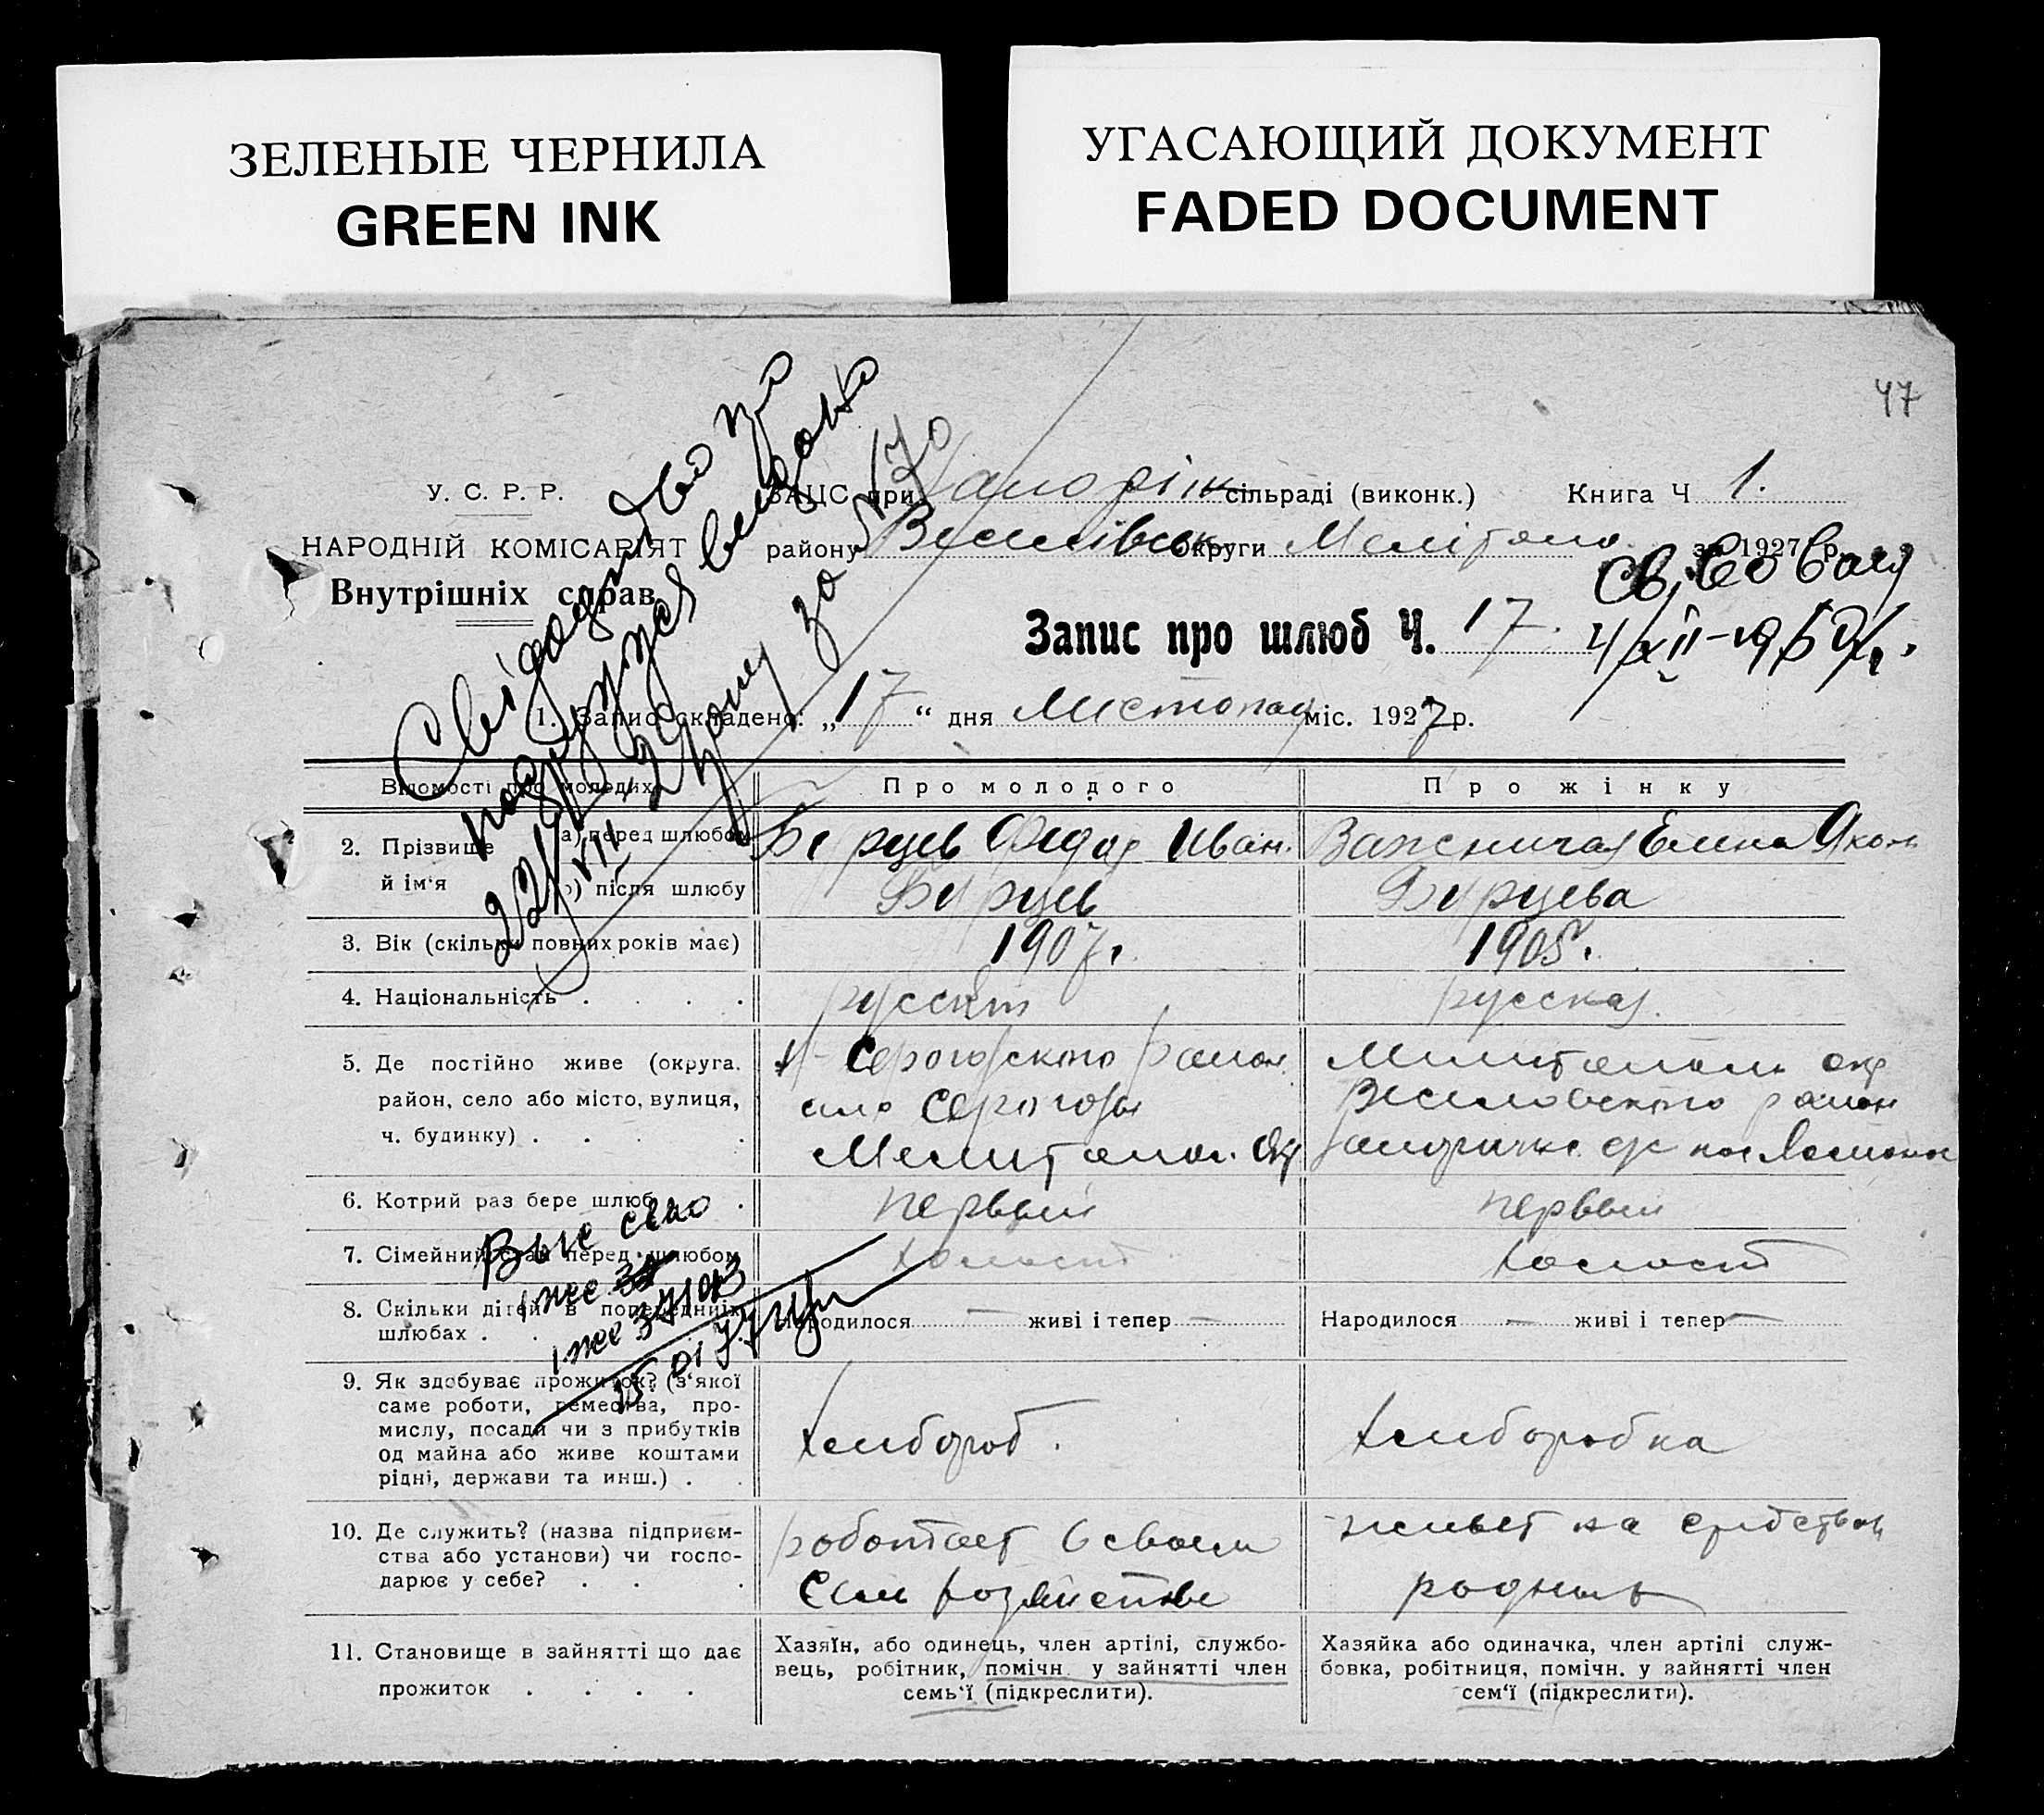 ЗЕЛЕНЫЕ ЧЕРНИЛА
GREEN INK
УГАСАЮЩИЙ ДОКУМЕНТ
FADED DOCUMENT
47
У. С. Р. Р.
НАРОДНІЙ КОМІСАРІЯТ
Внутрішніх справ
ЗАЦС при сільраді (виконк.) Книга Ч 1.
району округи Меліто за 1927 р.
Запис про шлюб Ч. 17.
1. Запис складено: „17“ дня Листопад міс. 1927 р.
Відомості про молодих Про молодого Про жінку
2. Прізвище й ім‘я
а) перед шлюбом Бурцев Федор Иван. Елена
б) після шлюбу Бурцев Бурцева
3. Вік (скільки повних років має) 1907г. 1905г.
4. Національність русский русская
5. Де постійно живе (округа,
район, село або місто, вулиця,
ч. будинку)
Серогозского район
село Серогозы
Мелитопол. Окр
Мелитополь окр
Веселовского район
6. Котрий раз бере шлюб первый первый
7. Сімейний стан перед шлюбом холост холост
8. Скільки дітей в попередніх
шлюбах
Народилося — живі і тепер —
Народилося — живі і тепер —
9. Як здобуває прожиток? (з‘якої
саме роботи, ремества, про-
мислу, посади чи з прибутків
од майна або живе коштами
рідні, держави та инш.)
хлибороб. хлиборобка
10. Де служить? (назва підприєм-
ства або установи) чи госпо-
дарює у себе?
работает в своем
сель хозяйстве
живет на средствах
родных
11. Становище в зайнятті що дає
прожиток
Хазяїн, або одинець, член артілі, службо-
вець, робітник, помічн. у зайнятті член
семь‘ї (підкреслити).
Хазяйка або одиначка, член артілі служ-
бовка, робітниця, помічн. у зайнятті член
сем‘ї (підкреслити).
Свідоцтво про